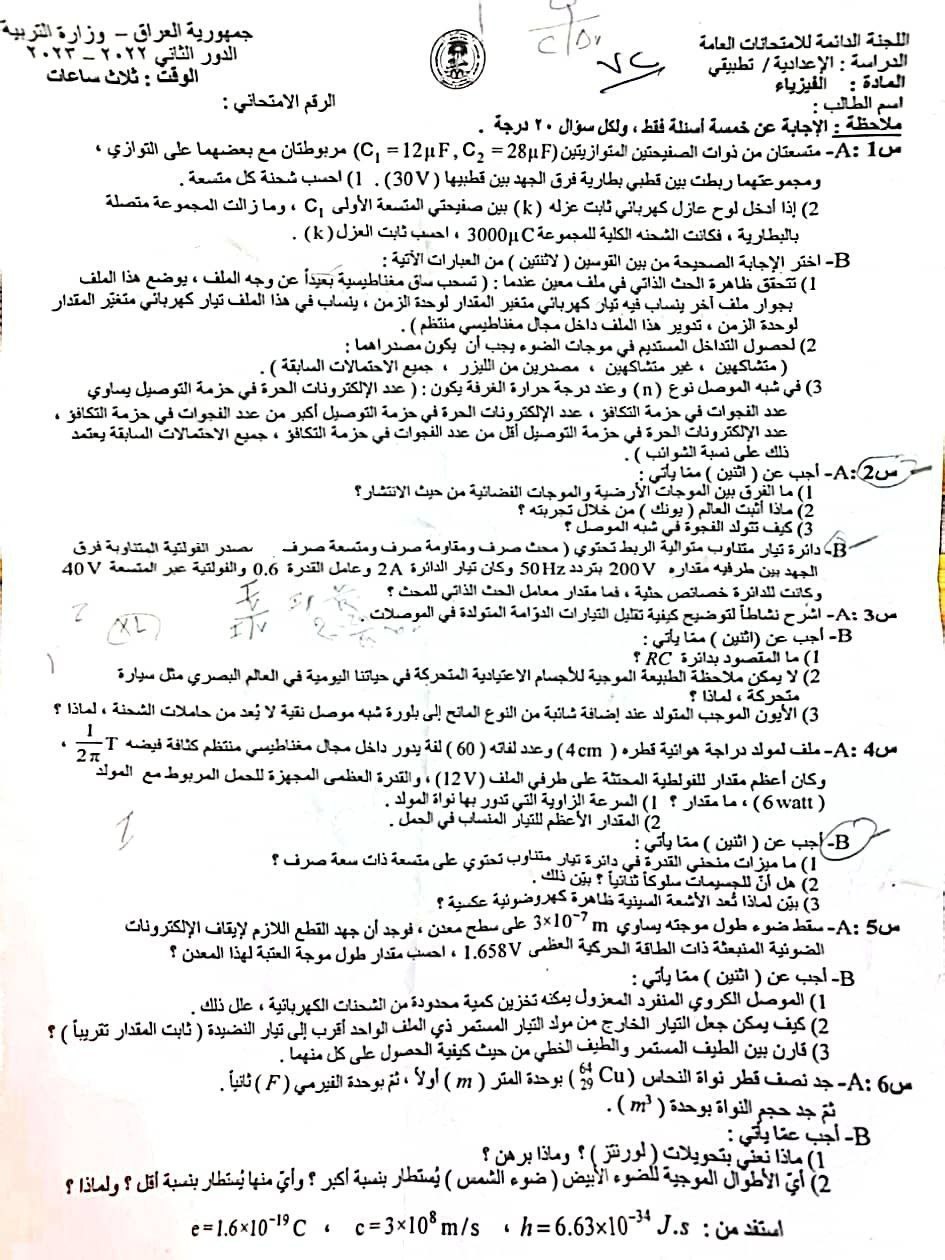 اللجنة الدائمة للامتحانات العامة
الدراسة : الإعدادية / تطبيقي
المادة : الفيزياء
اسم الطالب :
جمهورية العراق – وزارة التربية
الدور الثاني ٢٠٢٢ – ٢٠٢٣
الوقت : ثلاث ساعات
الرقم الامتحاني :
ملاحظة : الإجابة عن خمسة أسئلة فقط ، ولكل سؤال ٢٠ درجة .
س1 :A- متسعتان من ذوات الصفيحتين المتوازيتين (C₁ = 12μF , C₂ = 28μF) مربوطتان مع بعضهما على التوازي ،
ومجموعتهما ربطت بين قطبي بطارية فرق الجهد بين قطبيها (30V) . 1) احسب شحنة كل متسعة .
2) إذا أدخل لوح عازل كهربائي ثابت عزله (k) بين صفيحتي المتسعة الأولى C₁ ، وما زالت المجموعة متصلة
بالبطارية ، فكانت الشحنه الكلية للمجموعة 3000μC ، احسب ثابت العزل (k) .
B- اختر الإجابة الصحيحة من بين القوسين ( لاثنتين ) من العبارات الآتية :
1) تتحقق ظاهرة الحث الذاتي في ملف معين عندما : ( تسحب ساق مغناطيسية بعيداً عن وجه الملف ، يوضع هذا الملف
بجوار ملف آخر ينساب فيه تيار كهربائي متغير المقدار لوحدة الزمن ، ينساب في هذا الملف تيار كهربائي متغيّر المقدار
لوحدة الزمن ، تدوير هذا الملف داخل مجال مغناطيسي منتظم ) .
2) لحصول التداخل المستديم في موجات الضوء يجب أن يكون مصدراهما :
( متشاكهين ، غير متشاكهين ، مصدرين من الليزر ، جميع الاحتمالات السابقة ) .
3) في شبه الموصل نوع (n) وعند درجة حرارة الغرفة يكون : ( عدد الإلكترونات الحرة في حزمة التوصيل يساوي
عدد الفجوات في حزمة التكافؤ ، عدد الإلكترونات الحرة في حزمة التوصيل أكبر من عدد الفجوات في حزمة التكافؤ ،
عدد الإلكترونات الحرة في حزمة التوصيل أقل من عدد الفجوات في حزمة التكافؤ ، جميع الاحتمالات السابقة يعتمد
ذلك على نسبة الشوائب ) .
س2 :A- أجب عن ( اثنين ) ممّا يأتي :
1) ما الفرق بين الموجات الأرضية والموجات الفضائية من حيث الانتشار؟
2) ماذا أثبت العالم ( يونك ) من خلال تجربته ؟
3) كيف تتولد الفجوة في شبه الموصل ؟
B- دائرة تيار متناوب متوالية الربط تحتوي ( محث صرف ومقاومة صرف ومتسعة صرف مصدر الفولتية المتناوبة فرق
الجهد بين طرفيه مقداره 200V بتردد 50Hz وكان تيار الدائرة 2A وعامل القدرة 0.6 والفولتية عبر المتسعة 40V
وكانت للدائرة خصائص حثية ، فما مقدار معامل الحث الذاتي للمحث ؟
س3 :A- اشرح نشاطاً لتوضيح كيفية تقليل التيارات الدوّامة المتولدة في الموصلات .
B- أجب عن (اثنين ) ممّا يأتي :
1) ما المقصود بدائرة RC ؟
2) لا يمكن ملاحظة الطبيعة الموجية للأجسام الاعتيادية المتحركة في حياتنا اليومية في العالم البصري مثل سيارة
متحركة ، لماذا ؟
3) الأيون الموجب المتولد عند إضافة شائبة من النوع المانح إلى بلورة شبه موصل نقية لا يُعد من حاملات الشحنة ، لماذا ؟
س4 :A- ملف لمولد دراجة هوائية قطره ( 4cm ) وعدد لفاته ( 60 ) لفة يدور داخل مجال مغناطيسي منتظم كثافة فيضه 1/2π T ،
وكان أعظم مقدار للفولطية المحتثة على طرفي الملف (12V) ، والقدرة العظمى المجهزة للحمل المربوط مع المولد
( 6watt ) ، ما مقدار ؟ 1) السرعة الزاوية التي تدور بها نواة المولد .
2) المقدار الأعظم للتيار المنساب في الحمل .
B- أجب عن ( اثنين ) ممّا يأتي :
1) ما ميزات منحني القدرة في دائرة تيار متناوب تحتوي على متسعة ذات سعة صرف ؟
2) هل أنّ للجسيمات سلوكاً ثنائياً ؟ بيّن ذلك .
3) بيّن لماذا تُعد الأشعة السينية ظاهرة كهروضوئية عكسية ؟
س5 :A- سقط ضوء طول موجته يساوي 3×10⁻⁷ m على سطح معدن ، فوجد أن جهد القطع اللازم لإيقاف الإلكترونات
الضوئية المنبعثة ذات الطاقة الحركية العظمى 1.658V ، احسب مقدار طول موجة العتبة لهذا المعدن ؟
B- أجب عن ( اثنين ) ممّا يأتي :
1) الموصل الكروي المنفرد المعزول يمكنه تخزين كمية محدودة من الشحنات الكهربائية ، علل ذلك .
2) كيف يمكن جعل التيار الخارج من مولد التيار المستمر ذي الملف الواحد أقرب إلى تيار النضيدة ( ثابت المقدار تقريباً ) ؟
3) قارن بين الطيف المستمر والطيف الخطي من حيث كيفية الحصول على كل منهما .
س6 :A- جد نصف قطر نواة النحاس (⁶⁴₂₉Cu) بوحدة المتر ( m ) أولاً ، ثمّ بوحدة الفيرمي ( F ) ثانياً .
ثمّ جد حجم النواة بوحدة ( m³ ) .
B- أجب عمّا يأتي :
1) ماذا نعني بتحويلات ( لورنتز ) ؟ وماذا برهن ؟
2) أيّ الأطوال الموجية للضوء الأبيض ( ضوء الشمس ) يُستطار بنسبة أكبر ؟ وأيّ منها يُستطار بنسبة أقل ؟ ولماذا ؟
استفد من : e = 1.6×10⁻¹⁹ C ، c = 3×10⁸ m/s ، h = 6.63×10⁻³⁴ J.s